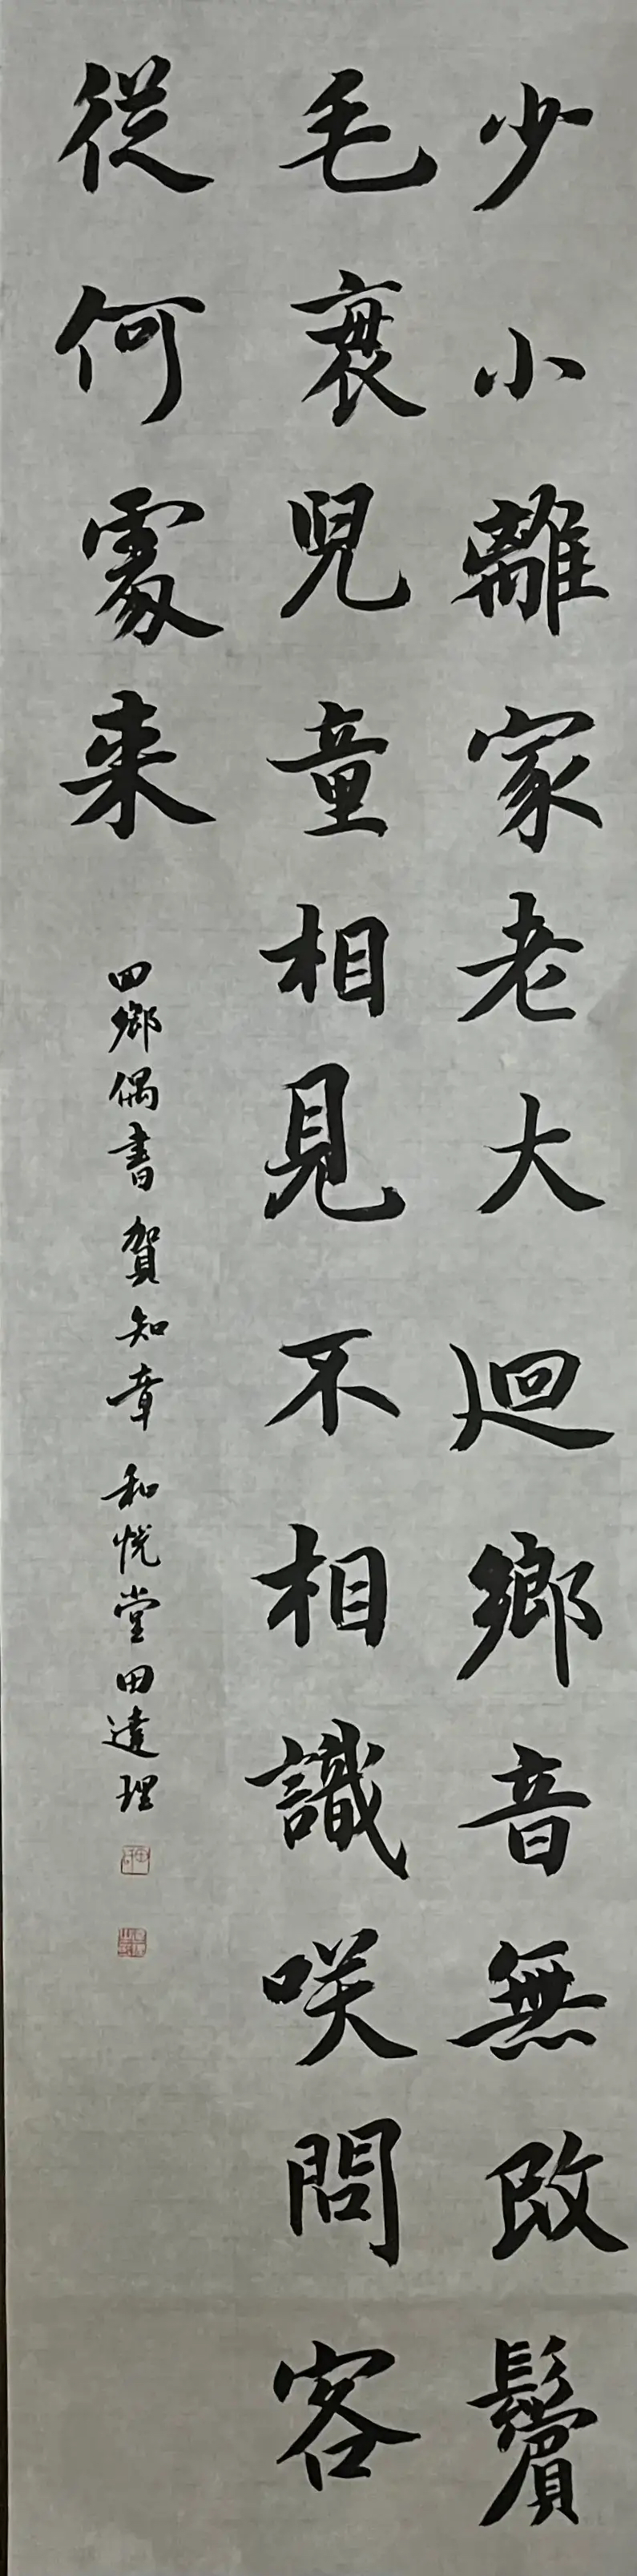 少小離家老大迴鄉音無改鬢
毛衰兒童相見不相識咲問客
從何處来
回鄉偶書 賀知章 和悅堂田達理